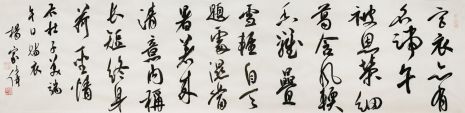 宮衣亦有
名端午
被恩榮細
葛含風軟
香羅疊
雪輕自天
題處濕當
暑著來
清意內稱
長短終身
荷聖情
右杜子美端
午日賜衣
楊家偉